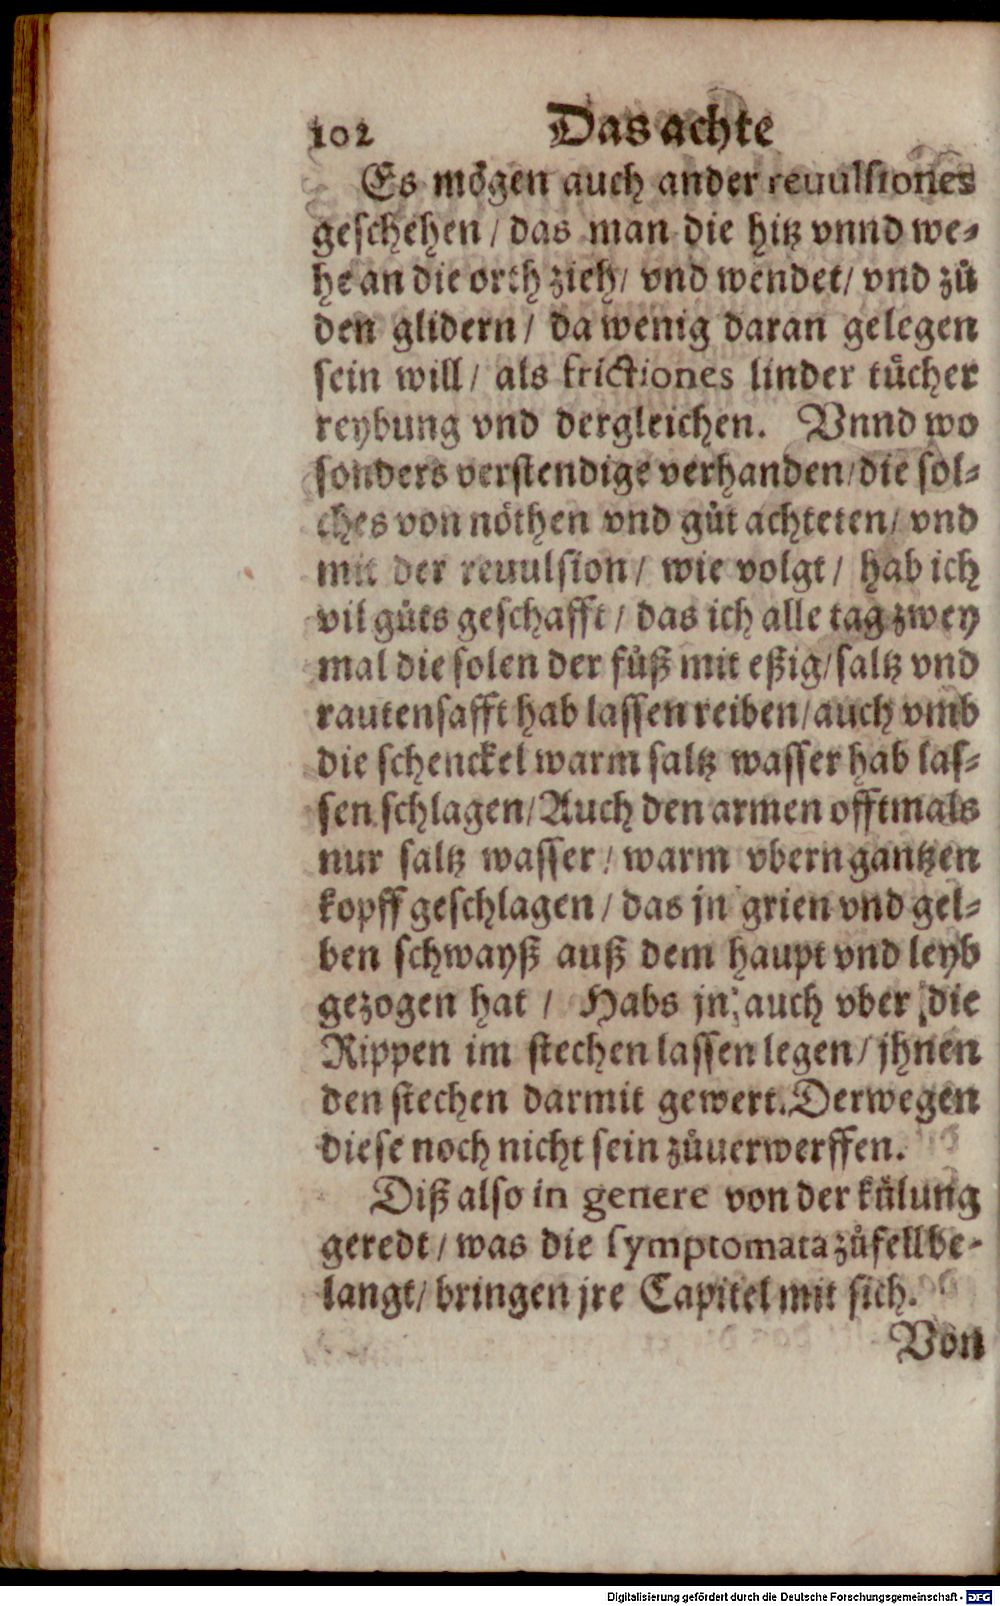 102 Das achte
Es mögen auch ander reuulsiones
geschehen / das man die hitz vnnd we-
he an die orth zieh / vnd wendet / vnd zů
den glidern / da wenig daran gelegen
sein will / als frictiones linder tücher
reybung vnd dergleichen. Vnnd wo
sonders verstendige verhanden / die sol-
ches von nöthen vnd gůt achteten / vnd
mit der reuulsion / wie volgt / hab ich
vil gůts geschafft / das ich alle tag zwey
mal die solen der füß mit eßig / saltz vnd
rautensafft hab lassen reiben / auch vmb
die schenckel warm saltz wasser hab las-
sen schlagen / Auch den armen offtmals
nur saltz wasser / warm vbern gantzen
kopff geschlagen / das jn grien vnd gel-
ben schwayß auß dem haupt vnd leyb
gezogen hat / Habs jn auch vber die
Rippen im stechen lassen legen / jhnen
den stechen darmit gewert. Derwegen
diese noch nicht sein zůuerwerffen.
Diß also in genere von der külung
geredt / was die symptomata zůfell be-
langt / bringen jre Capitel mit sich.
Von
Digitalisierung gefördert durch die Deutsche Forschungsgemeinschaft - DFG